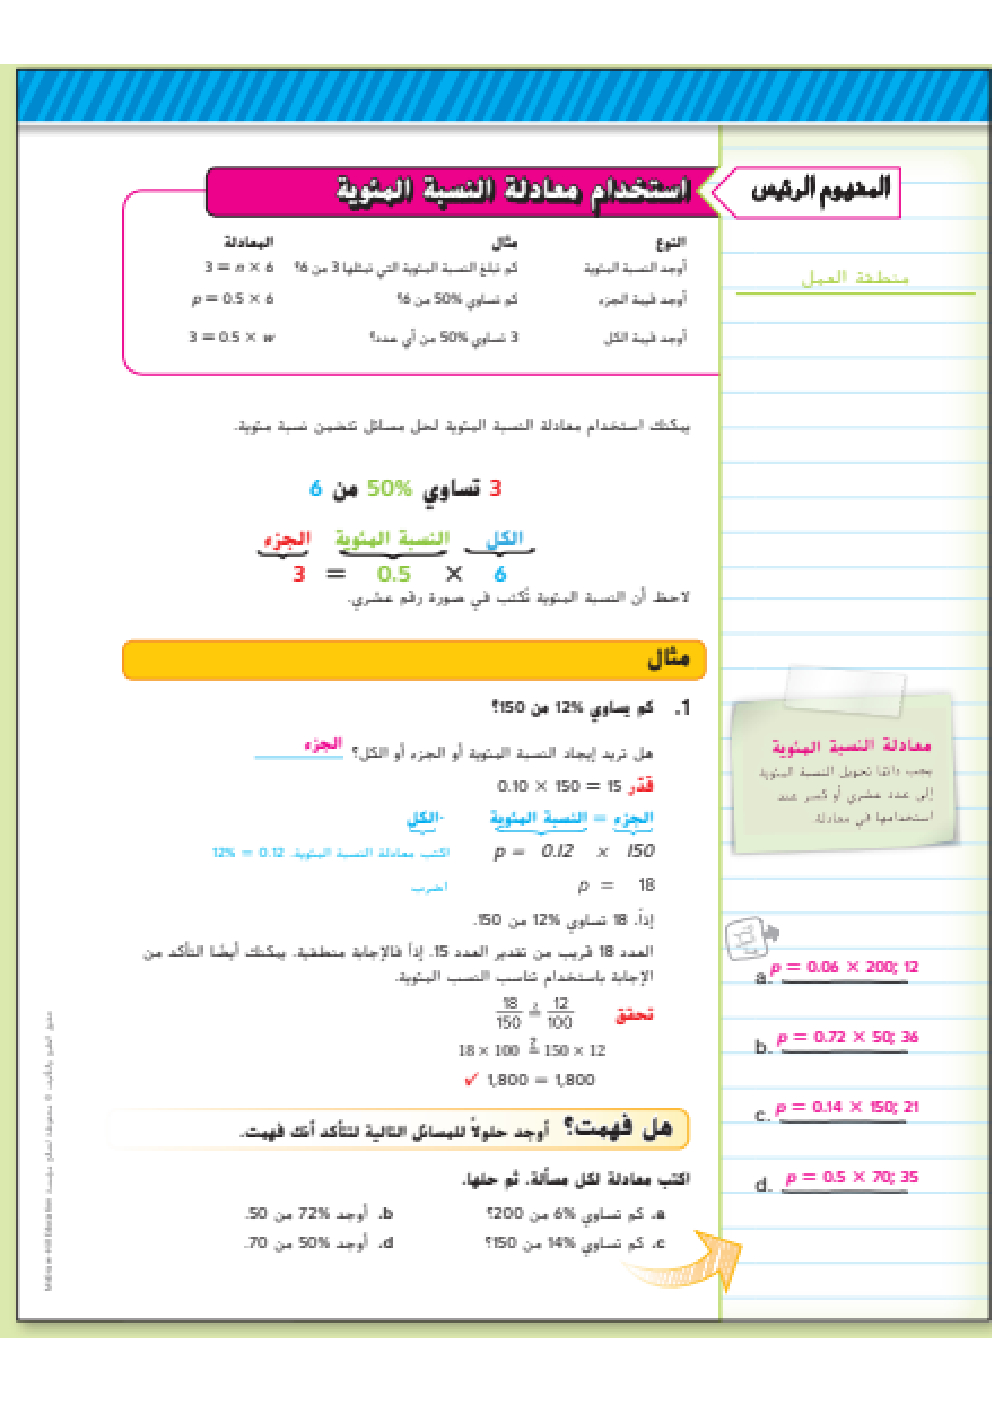 المفهوم الرئيس
استخدام معادلة النسبة المئوية
النوع مثال المعادلة
أوجد النسبة المئوية كم تبلغ النسبة المئوية التي تمثلها 3 من 6؟ 3 = n × 6
أوجد قيمة الجزء كم تساوي 50% من 6؟ p = 0.5 × 6
أوجد قيمة الكل 3 تساوي 50% من أي عدد؟ 3 = 0.5 × w
منطقة العمل
يمكنك استخدام معادلة النسبة المئوية لحل مسائل تتضمن نسبة مئوية.
3 تساوي 50% من 6
الجزء النسبة المئوية الكل
3 = 0.5 × 6
لاحظ أن النسبة المئوية تُكتب في صورة رقم عشري.
مثال
1. كم يساوي 12% من 150؟
هل تريد إيجاد النسبة المئوية أو الجزء أو الكل؟ الجزء
قدّر 0.10 × 150 = 15
الجزء = النسبة المئوية -الكل
p = 0.12 x 150 اكتب معادلة النسبة المئوية. 12% = 0.12
p = 18 اضرب
إذاً، 18 تساوي 12% من 150.
العدد 18 قريب من تقدير العدد 15. إذاً فالإجابة منطقية. يمكنك أيضًا التأكد من
الإجابة باستخدام تناسب النسب المئوية.
تحقق 18/150 ≟ 12/100
18 × 100 ≟ 150 × 12
✓ 1,800 = 1,800
هل فهمت؟ أوجد حلولاً للمسائل التالية لتتأكد أنك فهمت.
اكتب معادلة لكل مسألة. ثم حلها.
a. كم تساوي 6% من 200؟ b. أوجد 72% من 50.
c. كم تساوي 14% من 150؟ d. أوجد 50% من 70.
معادلة النسبة المئوية
يجب دائمًا تحويل النسبة المئوية
إلى عدد عشري أو كسر عند
استخدامها في معادلة.
a. p = 0.06 × 200; 12
b. p = 0.72 × 50; 36
c. p = 0.14 × 150; 21
d. p = 0.5 × 70; 35